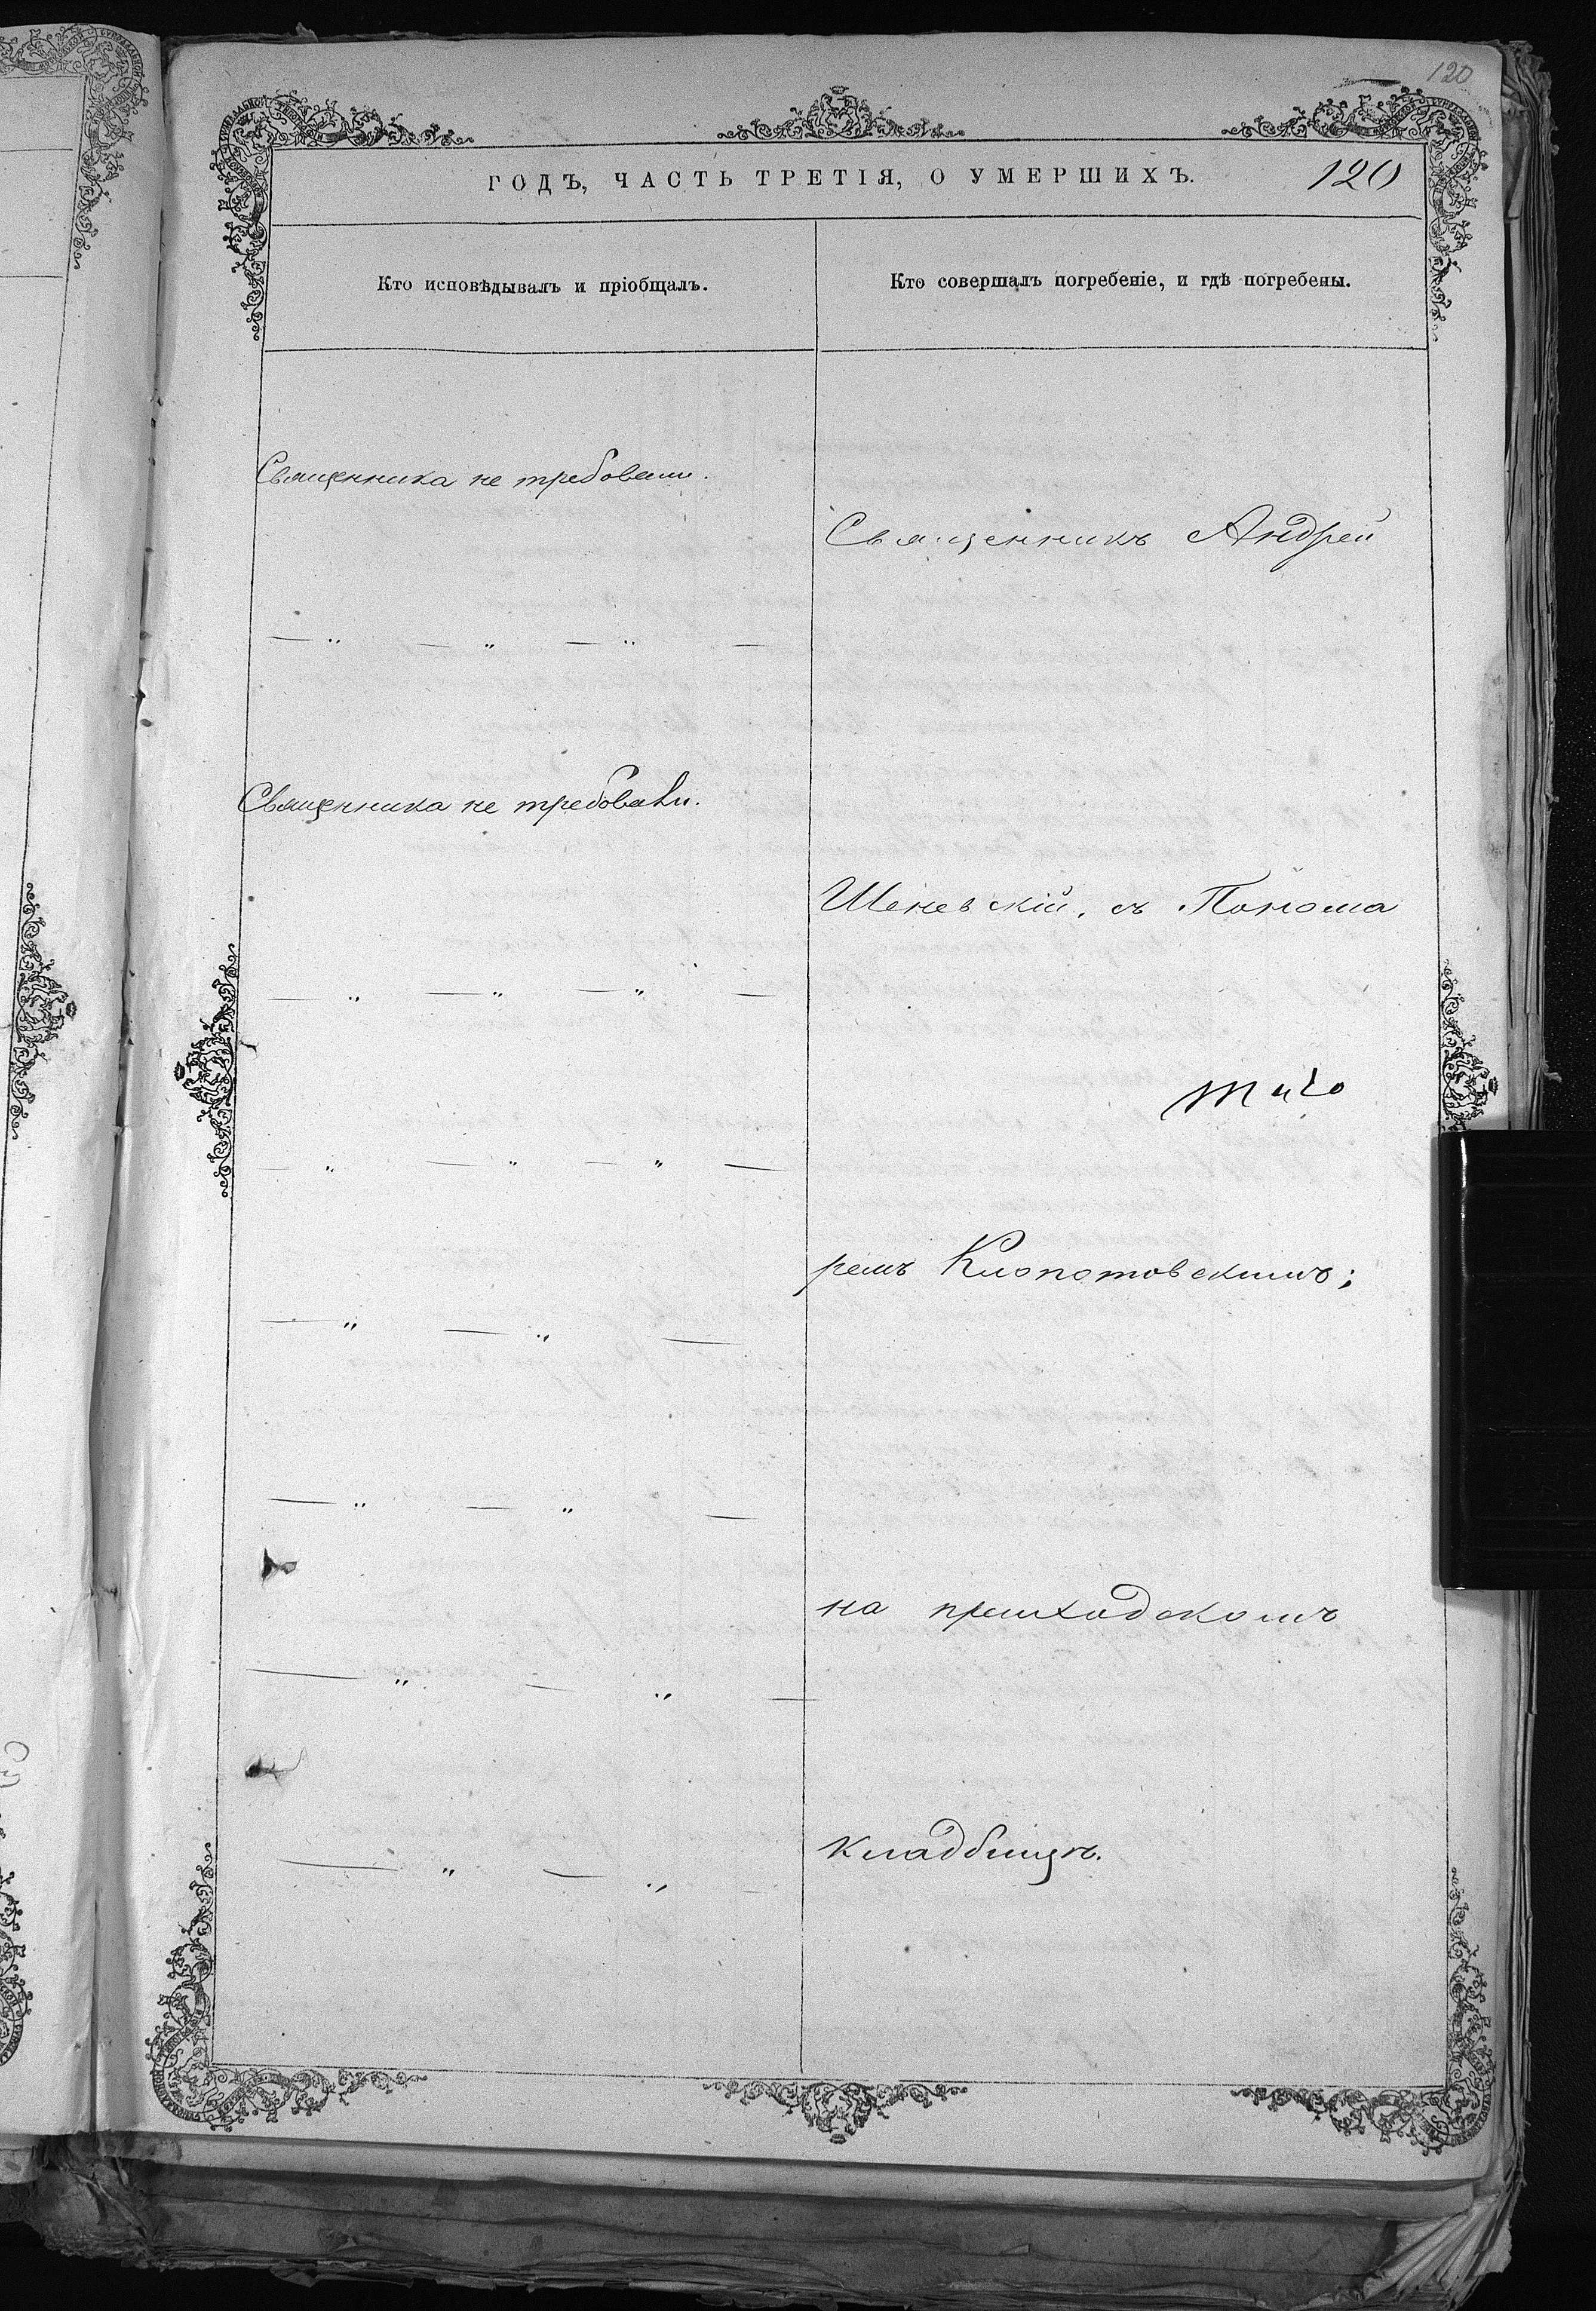 120
ГОДЪ, ЧАСТЬ ТРЕТІЯ, О УМЕРШИХЪ.
120
Кто исповѣдывалъ и пріобщалъ.
Кто совершалъ погребеніе, и гдѣ погребены.
Священника не требовали.
Священникъ Андрей
— „ — „ — „ —
Священника не требовали.
скій, съ Понома
— „ — „ — „ —
— „ — „ — „ —
ремъ Клопотовскимъ;
— „ — „ —
— „ — „ —
на приходскомъ
— „ — „ —
кладбищѣ.
— „ — „ —